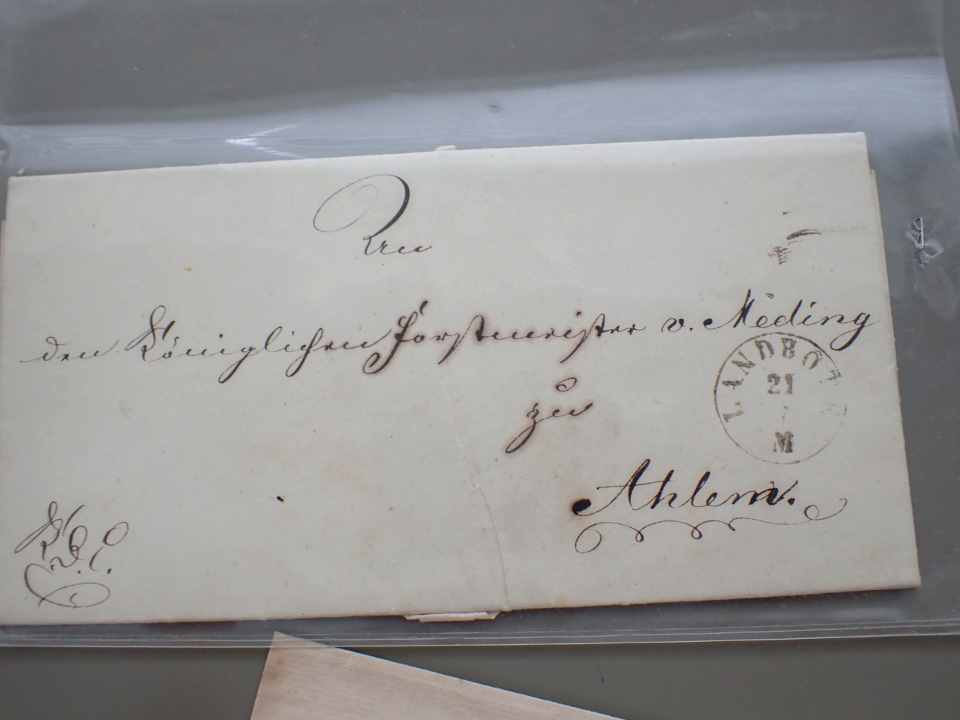 An
den Königlichen Forstmeister v. Meding
zu
Ahlem.
LANDBOT
21
M